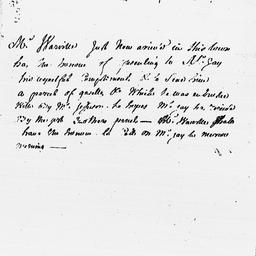 Mr. Harvillr Just Now arriv'd in this town
has the honour of presenting to Mr. Jay
his respectful Compliments & to Send him
a parcel of gazettes &c Which he was
With By Mr. Jefferson. he hopes Mr. Jay has receiv'd
By the post
have the honour to Call on Mr. Jay to morrow
morning —